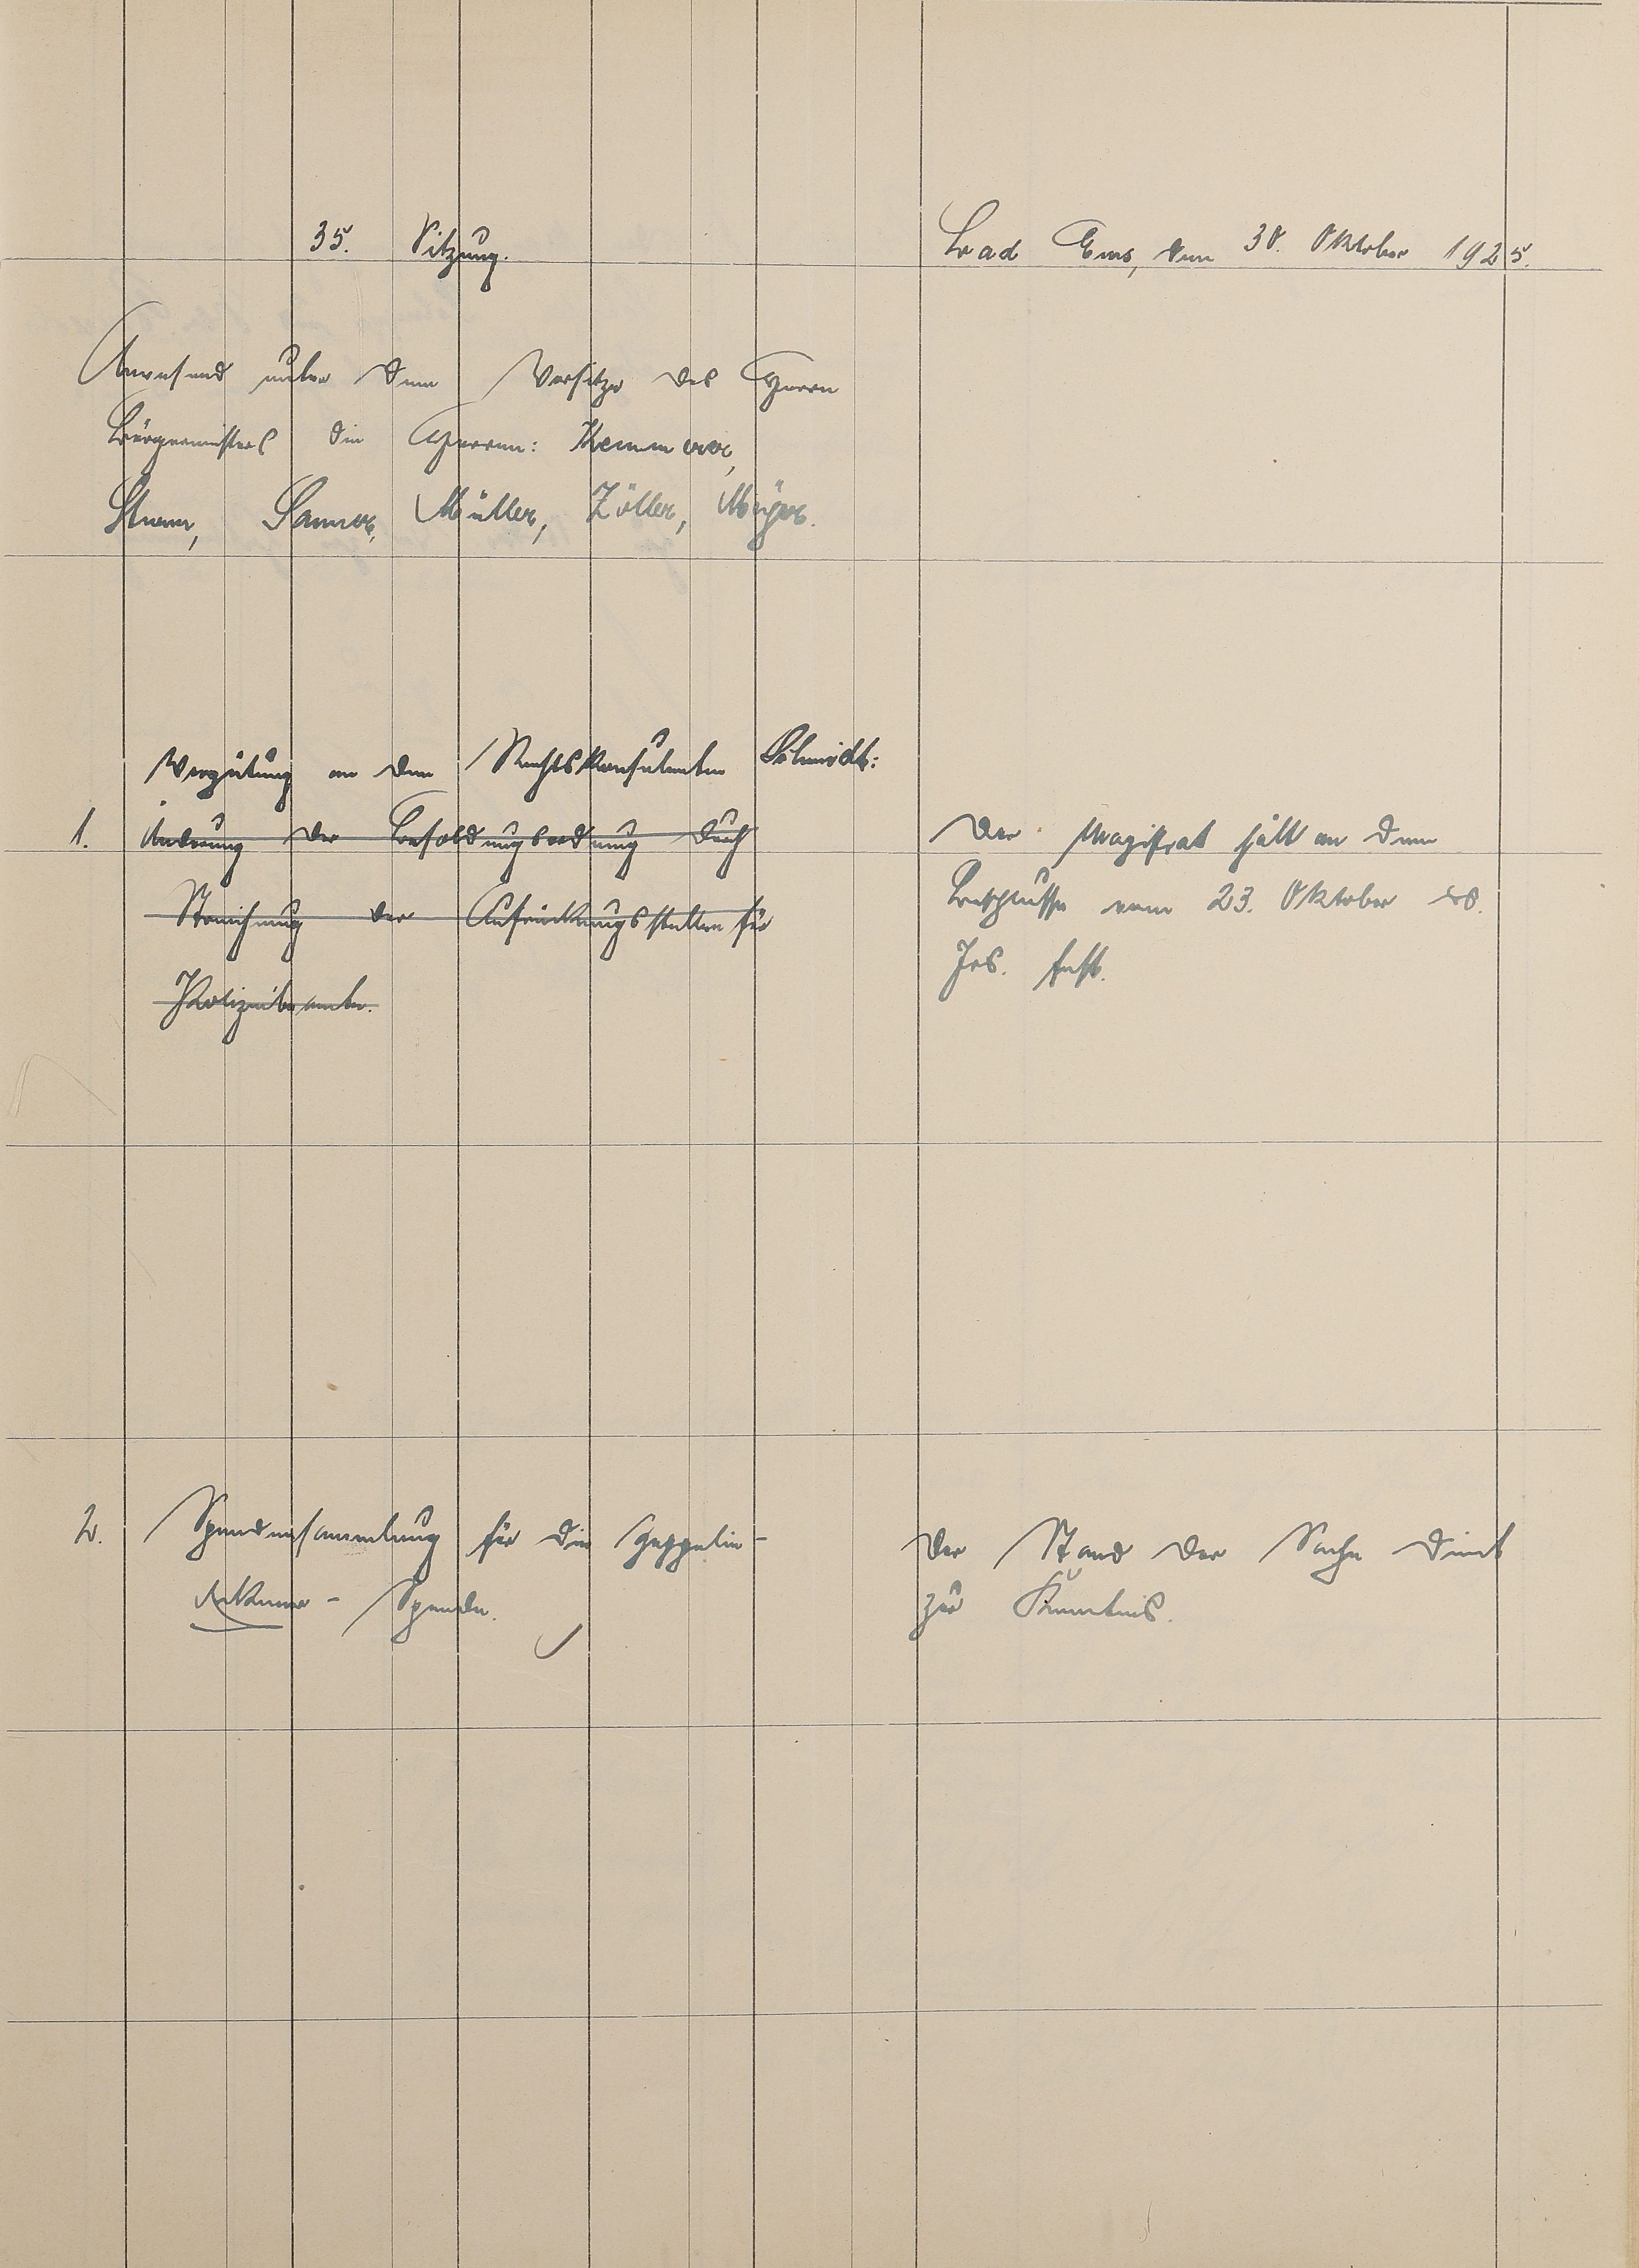 35. Sitzung.
Bad Ems, den 30. Oktober 1925.
Anwesend unter dem Vorsitze des Herrn
Bürgermeisters die Herren: Kemmerer,
Sturm, Sanner, Müller, Zöller, Meyer.
Vergütung an den Rechtskonsulenten Schmidt:
1. Änderung der Besoldungsordnung durch
Streichung der Aufrückungsstellen für
Polizeibeamte.
Der Magistrat hält an dem
Beschlusse vom 23. Oktober ds.
Jrs. fest.
2. Spendensammlung für die Zeppelin-
Eckener-Spende.
Der Stand der Sache dient
zur Kenntnis.